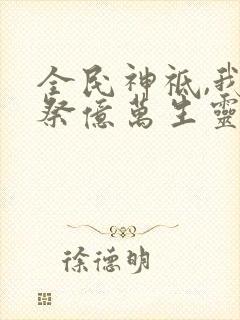 全民神祇,我
祭億萬生靈
徐德明